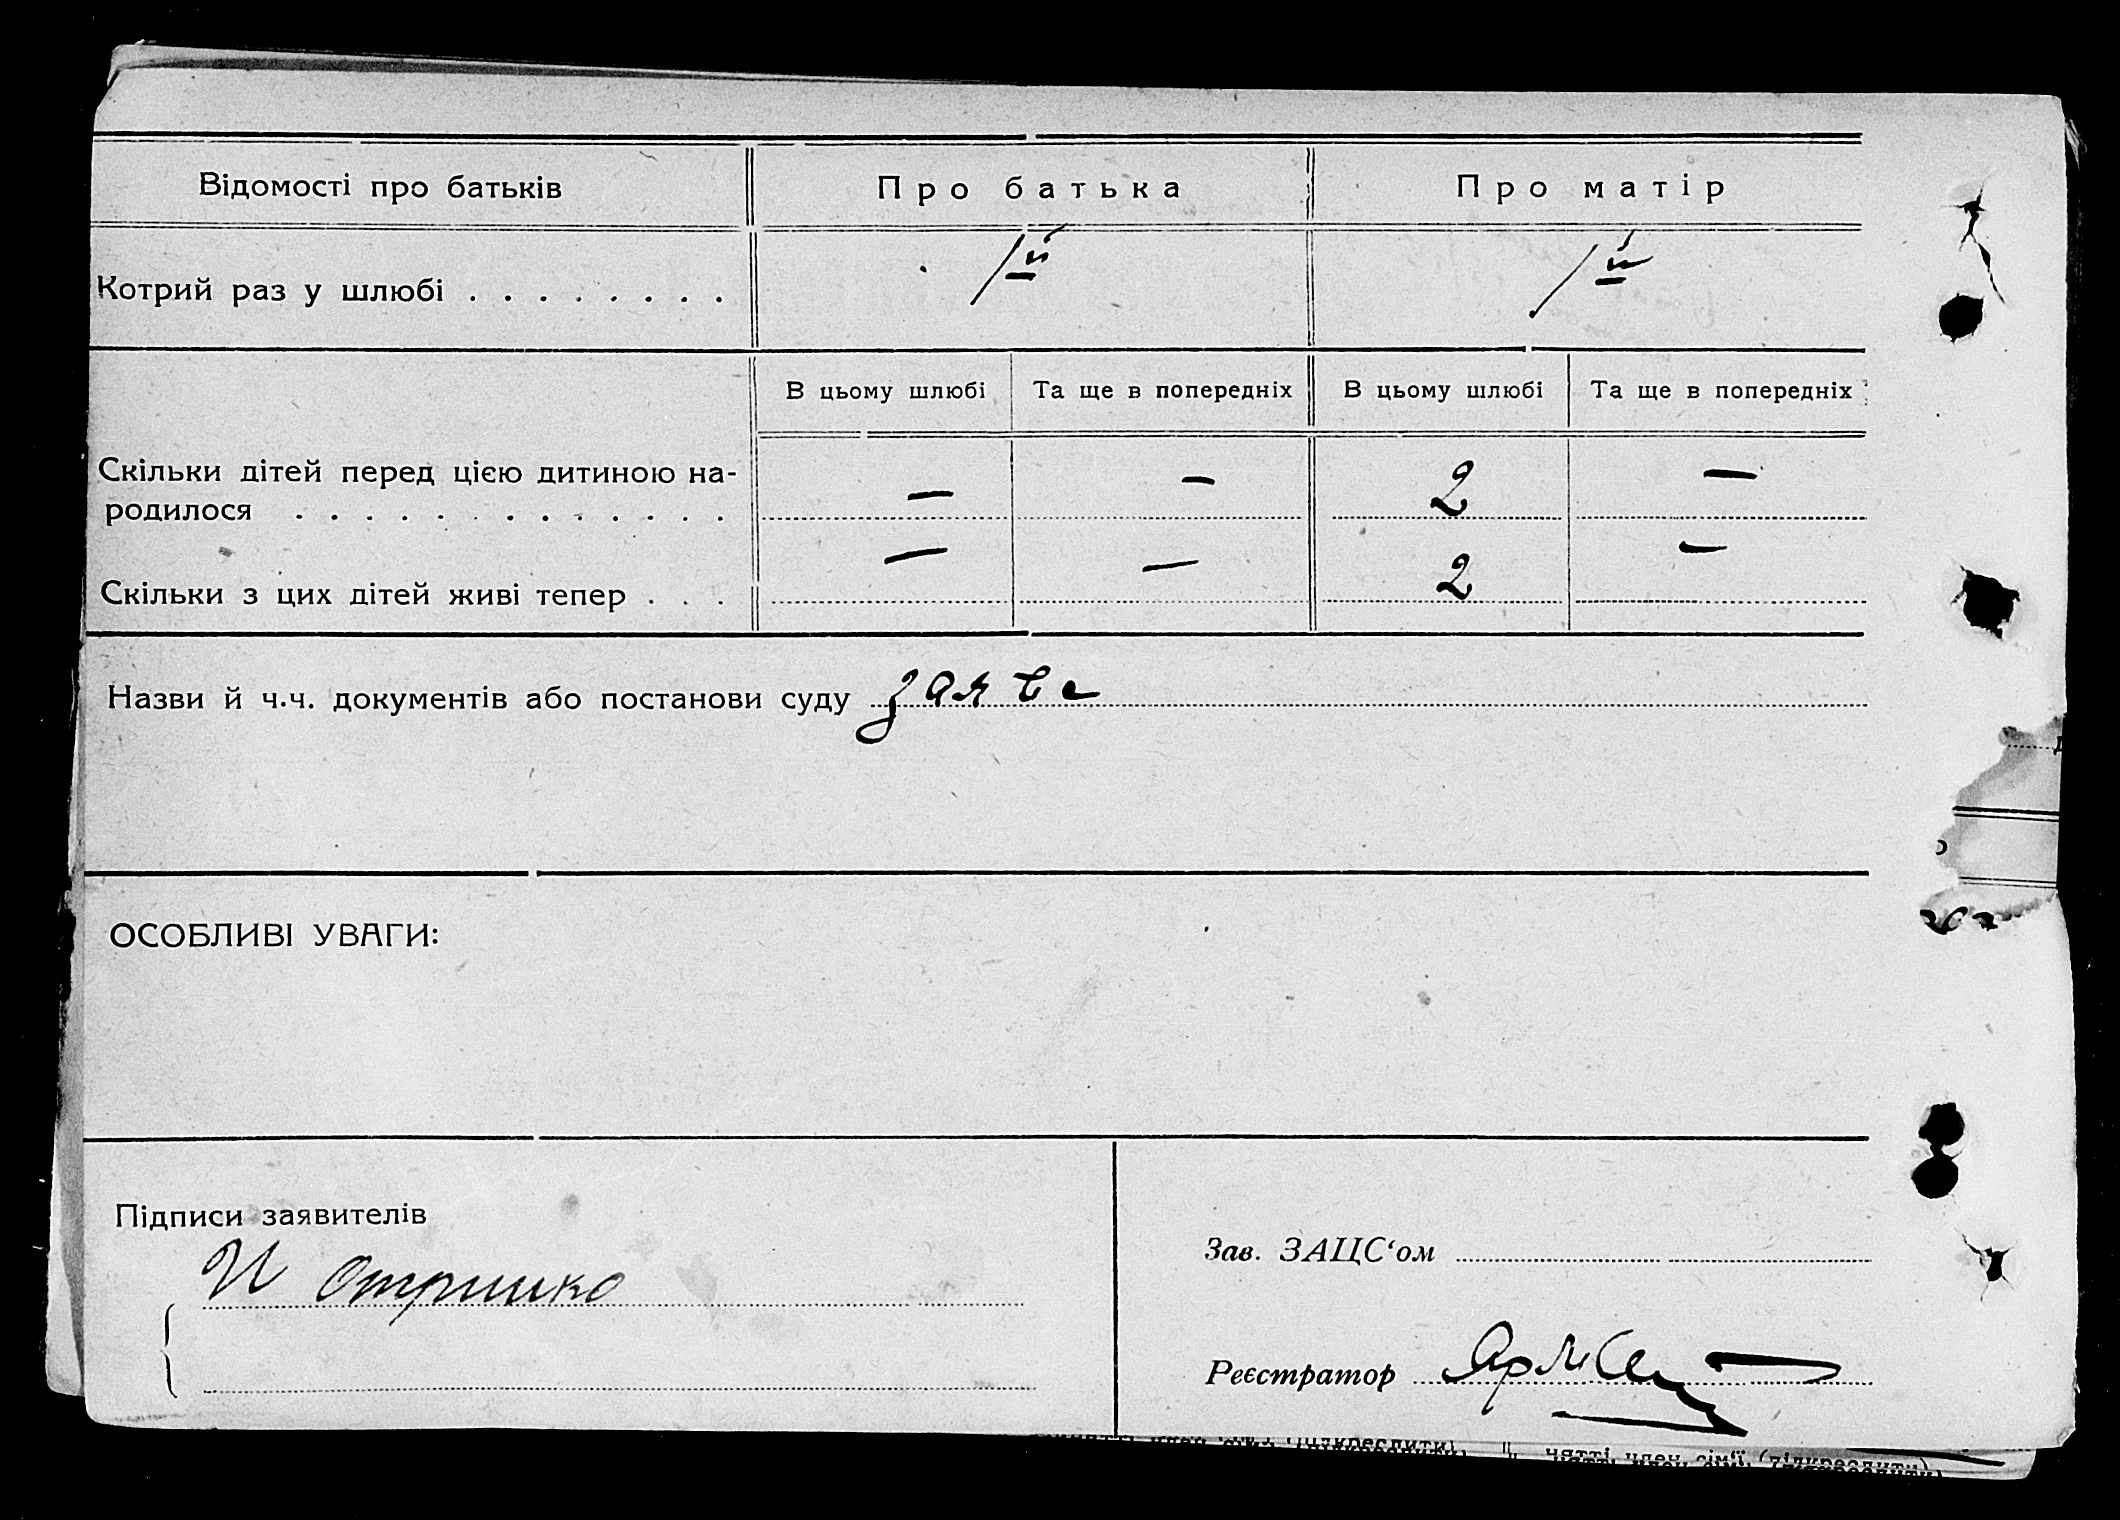 Відомості про батьків Про батька Про матір
Котрий раз у шлюбі . . . . . . . . 1й 1й
В цьому шлюбі Та ще в попередніх В цьому шлюбі Та ще в попередніх
Скільки дітей перед цією дитиною на-
родилося . . . . . . . . . . . . . — — 2 —
Скільки з цих дітей живі тепер . . . — — 2 —
Назви й ч.ч. документів або постанови суду заява
ОСОБЛИВІ УВАГИ:
Підписи заявителів
Зав. ЗАЦС‘ом
Реєстратор
член сім'ї (підкреслити)